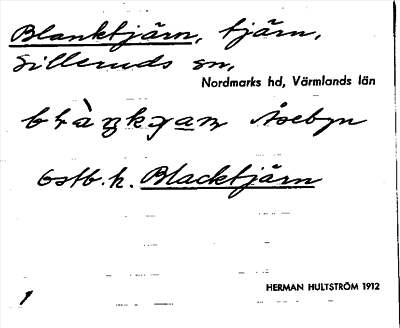 Blanktjärn, tjärn,
Silleruds sn,
Nordmarks hd, Värmlands län
Åsebyn
Ostb. h. Blacktjärn
1
HERMAN HULTSTRÖM 1912